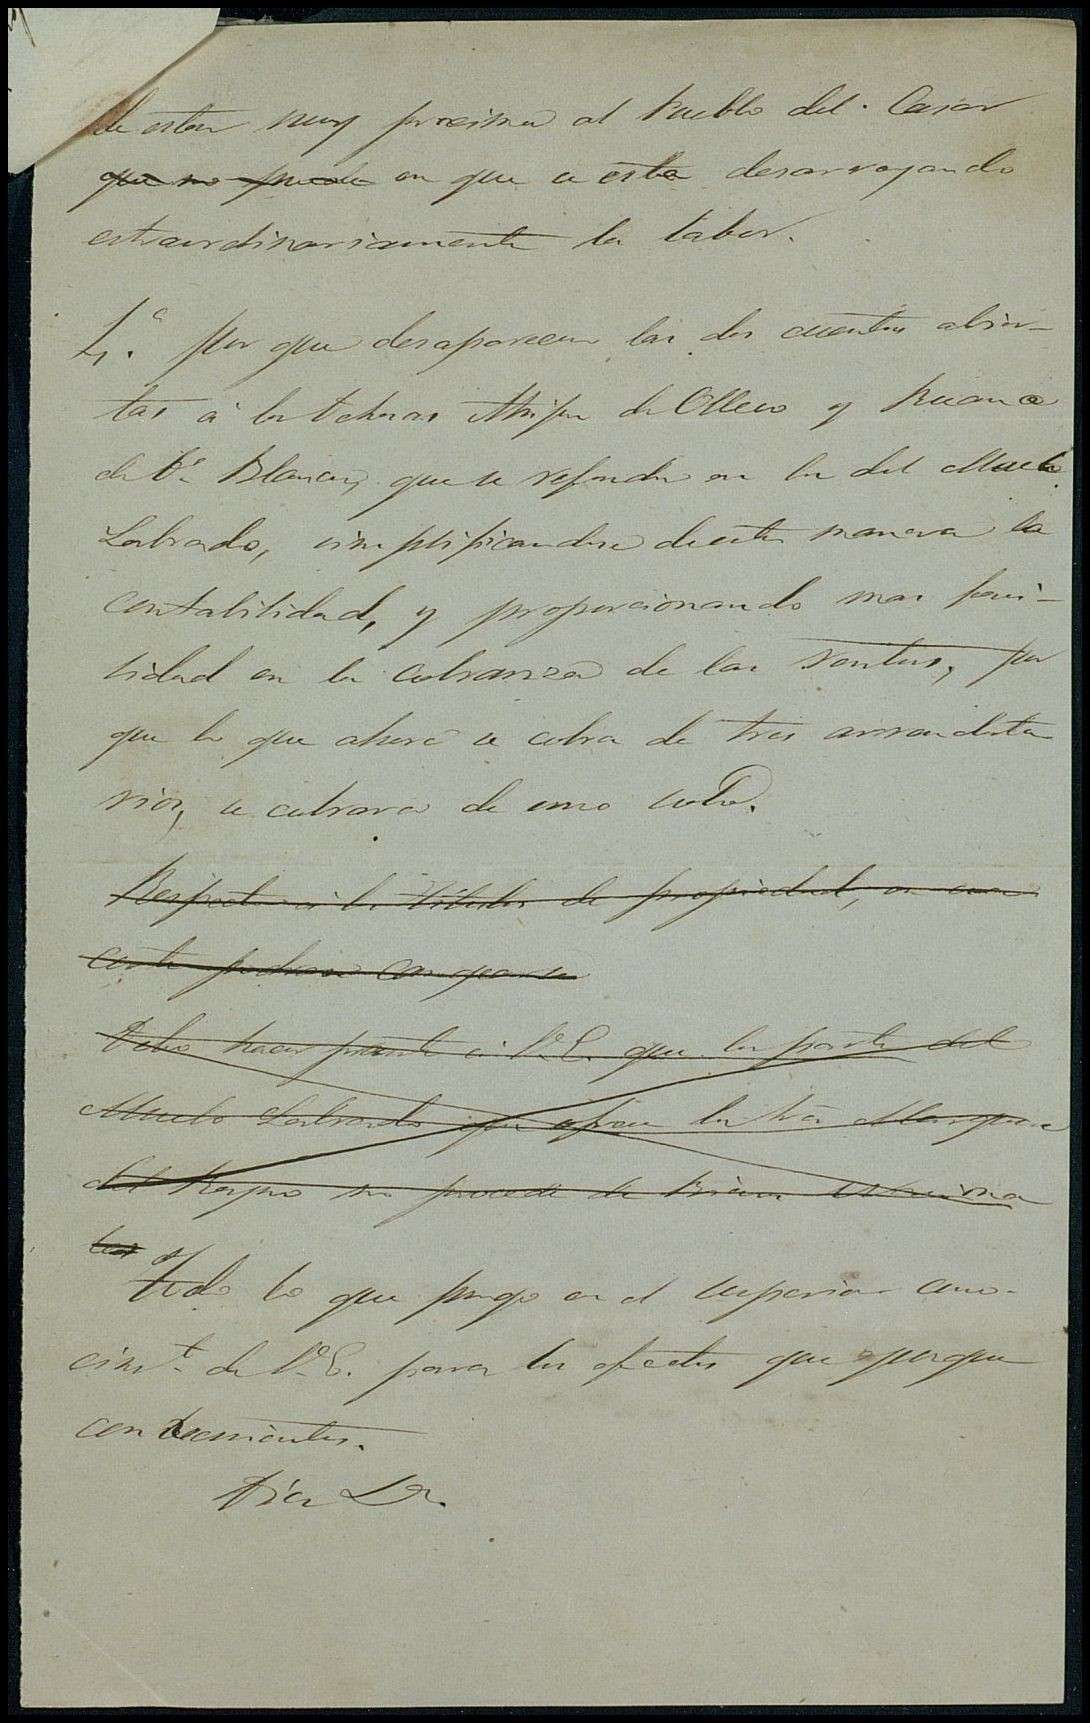 de estar muy proxima al Pueblo del Casar
que no puede en que se esta desarroyando
estraordinariamente la labor.
4.ª por que desaparecen las dos cuentas abier-
tas á las dehesas de y
de V.ª Blanca, que se refunden en la del Muelo
Labrado, simplificandose de esta manera la
contabilidad, y proporcionando mas faci-
lidad en la cobranza de las rentas, por
que lo que ahora se cobra de tres arrendata
rios, se cobrara de uno solo.
Respecto á los titulos de propiedad, en
podrian
Debo hacer preste á V.E. que la parte del
Muelo Labrado que ofrece la Sra Marquesa
del no procede de
Todo lo que pongo en el superior cono-
cimt.º de V.E. para los efectos que juzgue
convenientes.
Dios &a.